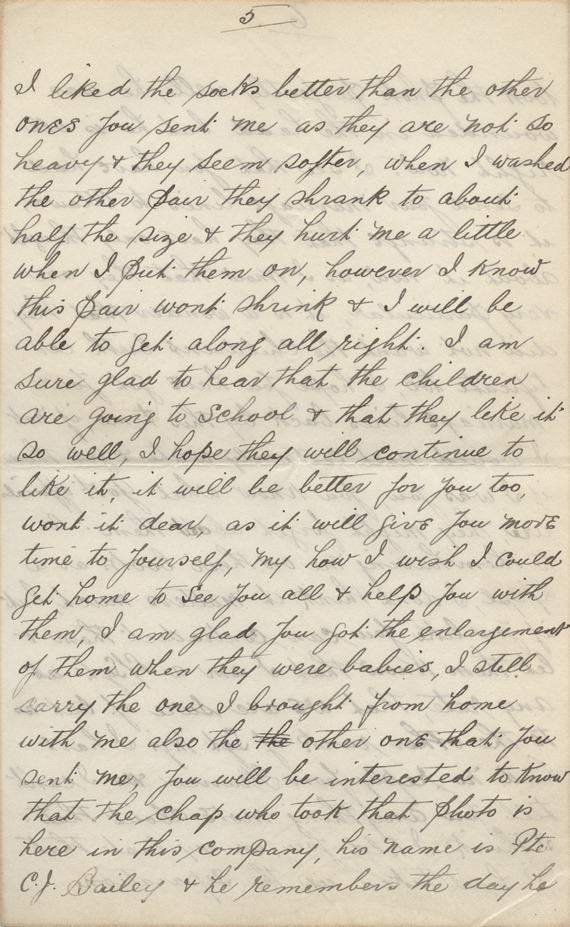 5
I liked the socks better than the other
ones you sent me as they are not so
heavy & they seem softer, when I washed
the other pair they shrank to about
half the size & they hurt me a little
when I put them on, however I know
this pair wont shrink & I will be
able to get along all right. I am
sure glad to hear that the children
are going to school & that they like it
so well, I hope they will continue to
like it, it will be better for you too,
wont it dear, as it will give you more
time to yourself, my how I wish I could
get home to see you all & help you with
them, I am glad you got the enlargement
of them when they were babies, I still
carry the one I brought from home
with me also the the other one that you
sent me, you will be interested to know
that the chap who took that photo is
here in this company, his name is Pte
C.J. Bailey & he remembers the day he